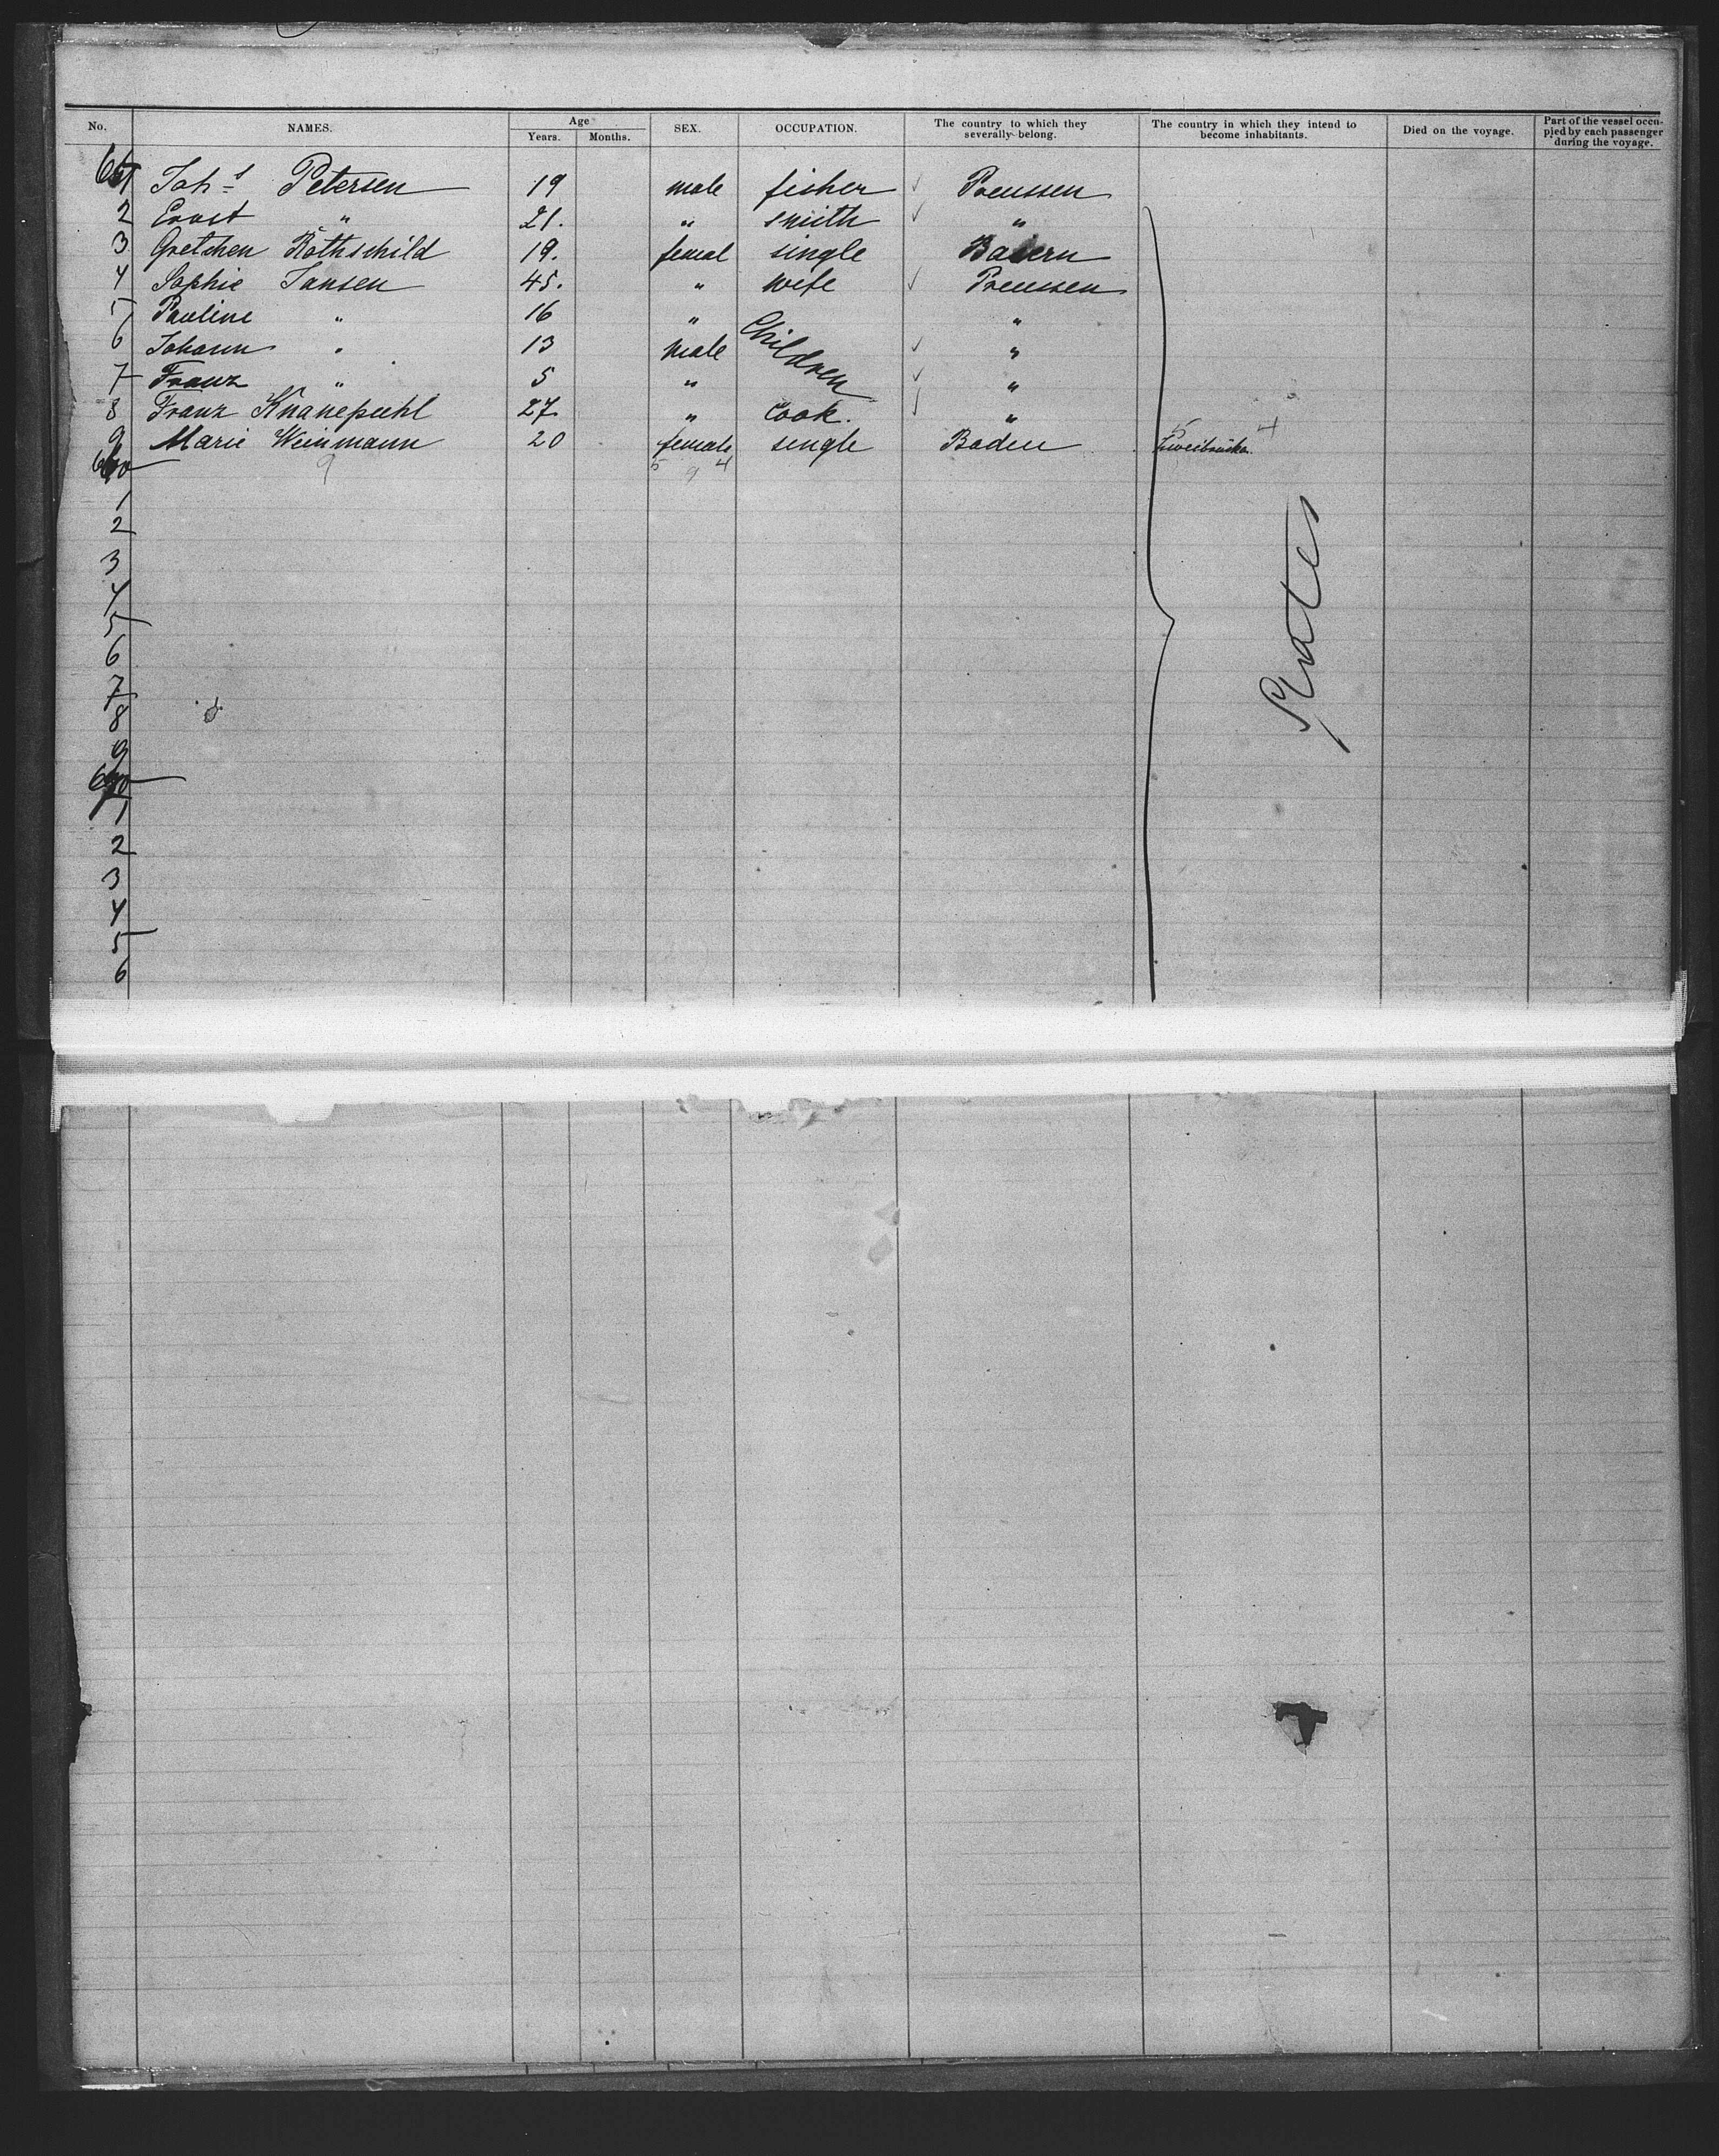 No. NAMES. Age Years. Months. SEX. OCCUPATION. The country to which they severally belong. The country in which they intend to become inhabitants. Died on the voyage. Part of the vessel occupied by each passenger during the voyage.
1 Joh-s Petersen 19 male fisher ✓ Preussen
2 Ernst " 21. " smith ✓ "
3 Gretchen Rothschild 19. femal single Baiern
4 Sophie Jansen 45. " wife ✓ Preussen
5 Pauline " 16 " Children "
6 Johann " 13 male ✓ "
7 Franz " 5 " ✓ "
8 Franz 27. " cook. ✓ "
9 Marie Weinmann 20 female single Baden 5 4
9 5 9 4
1
2
3
4
5
6
7
8
9
1
2
3
4
5
6
States